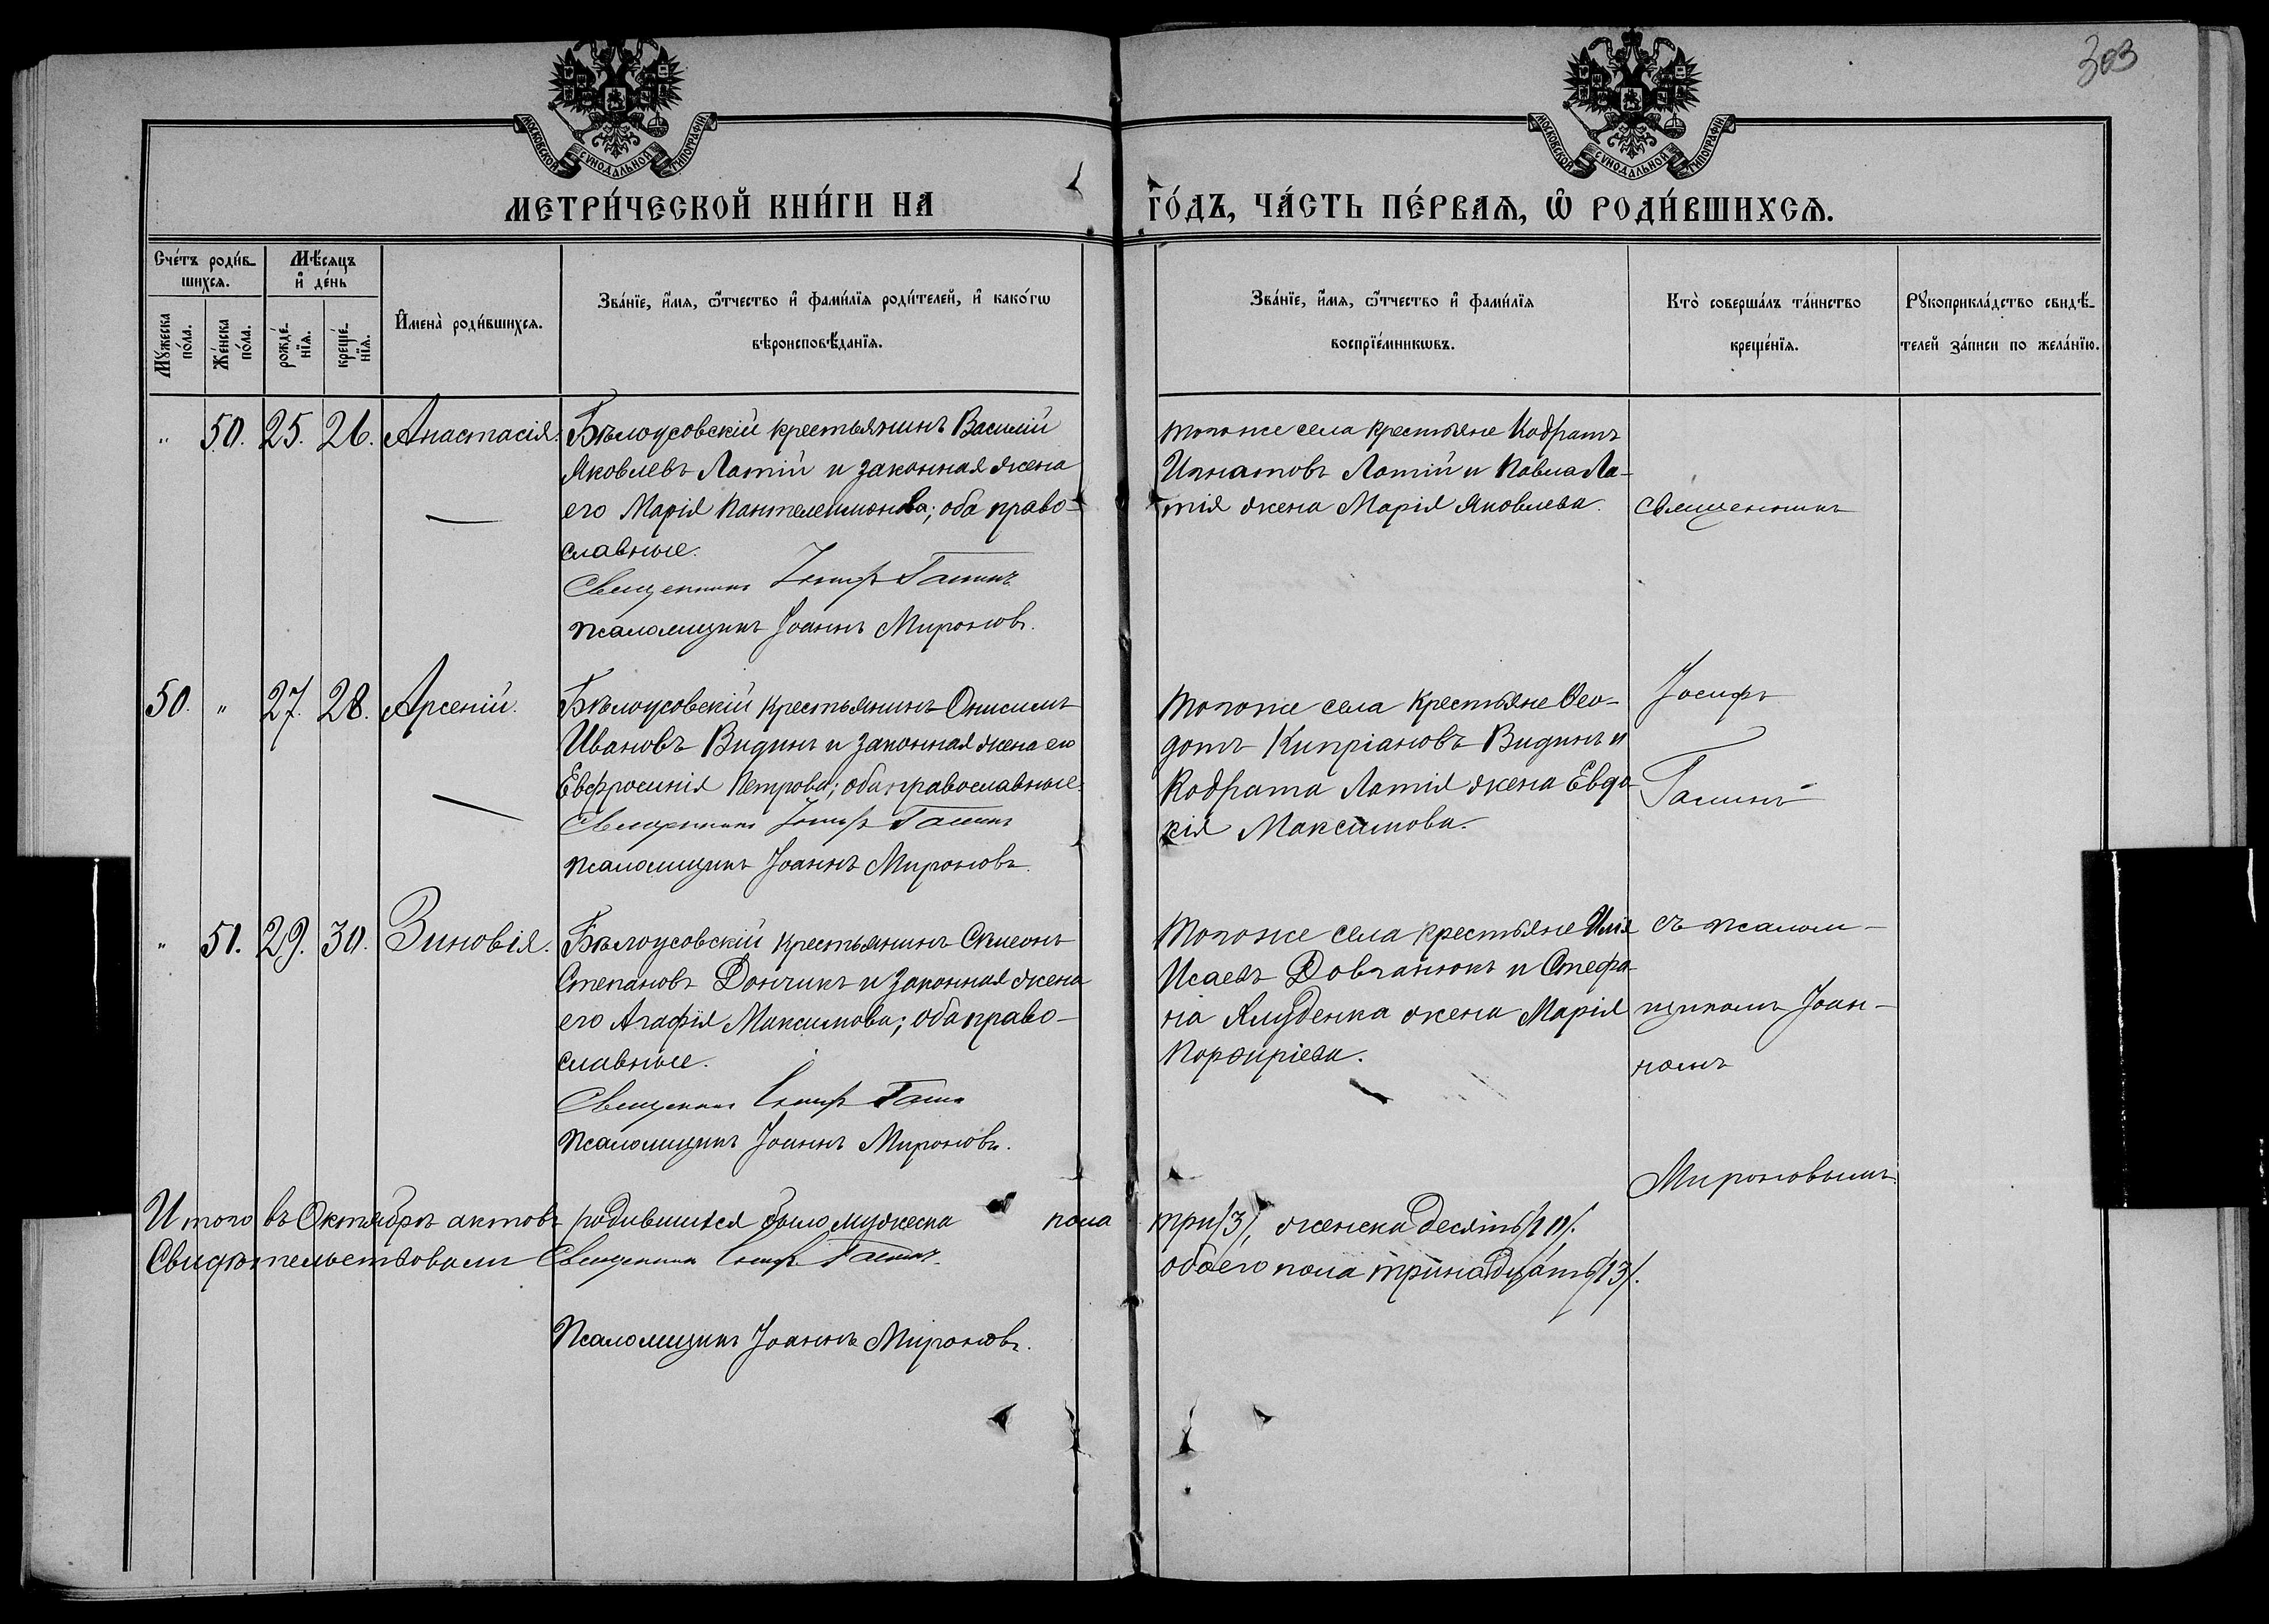 303
МОСКОВСКОЙ СѴНОДАЛЬНОЙ ТИПОГРАФІИ
МОСКОВСКОЙ СѴНОДАЛЬНОЙ ТИПОГРАФІИ
МЕТРИ́ЧЕСКОЙ КНИ́ГИ НА
ГО́ДЪ, ЧА́СТЬ ПЕ́РВАѦ, Ѡ҆ РОДИ́ВШИХСѦ.
Сче́тъ роди́в-
шихсѧ.
Мѣ́сѧцъ
и҆ де́нь
Мꙋ́жеска
по́ла.
Же́нска
по́ла.
рожде́-
нїѧ.
креще́-
нїѧ.
И҆мена̀ роди́вшихсѧ.
Зва́нїе, и҆́мѧ, ѻ҆́тчество и҆ фами́лїѧ роди́телей, и҆ како́гѡ
вѣроисповѣ́данїѧ.
Зва́нїе, и҆́мѧ, ѻ҆́тчество и҆ фами́лїѧ
воспрїе́мникѡвъ.
Кто̀ соверша́лъ та́инство
креще́нїѧ.
Рꙋкоприкла́дство свидѣ́-
телей за́писи по жела́нїю.
" 50. 25. 26. Анастасія.
Бѣлоусовскій крестьянинъ Василій
Яковлевъ Латій и законная жена
его Марія Пантелеимонова; оба право-
славные.
Священникъ Іосифъ Ганинъ
псаломщикъ Іоаннъ Мироновъ.
тогоже села крестьяне Кодратъ
Игнатовъ Латій и Павла Ла-
тія жена Марія Яковлева.
Священникъ
50. " 27. 28. Арсеній.
Бѣлоусовскій крестьянинъ Онисимъ
Ивановъ Видинъ и законная жена его
Евфросинія Петрова; оба православные.
Священникъ Іосифъ Ганинъ
псаломщикъ Іоаннъ Мироновъ.
тогоже села крестьяне Ѳео-
дотъ Кипріановъ Видинъ и
Кодрата Латія жена Евдо-
кія Максимова.
Іосифъ
Ганинъ
" 51. 29. 30. Зиновія.
Бѣлоусовскій крестьянинъ Симеонъ
Степановъ Дончикъ и законная жена
его Агафія Максимова; оба право-
славные.
Священникъ Іосифъ Ганинъ
псаломщикъ Іоаннъ Мироновъ.
тогоже села крестьяне Илія
Исаевъ Довганюкъ и Стефа-
на жена Марія
Порфиріева.
съ псалом-
щикомъ Іоан-
номъ
Мироновымъ.
Итого въ Октябрѣ актовъ родившихся было мужеска пола
три /3/, женска десять /10/.
Свидѣтельствовали Священникъ Іосифъ Ганинъ
обоего пола тринадцать /13/.
Псаломщикъ Іоаннъ Мироновъ.